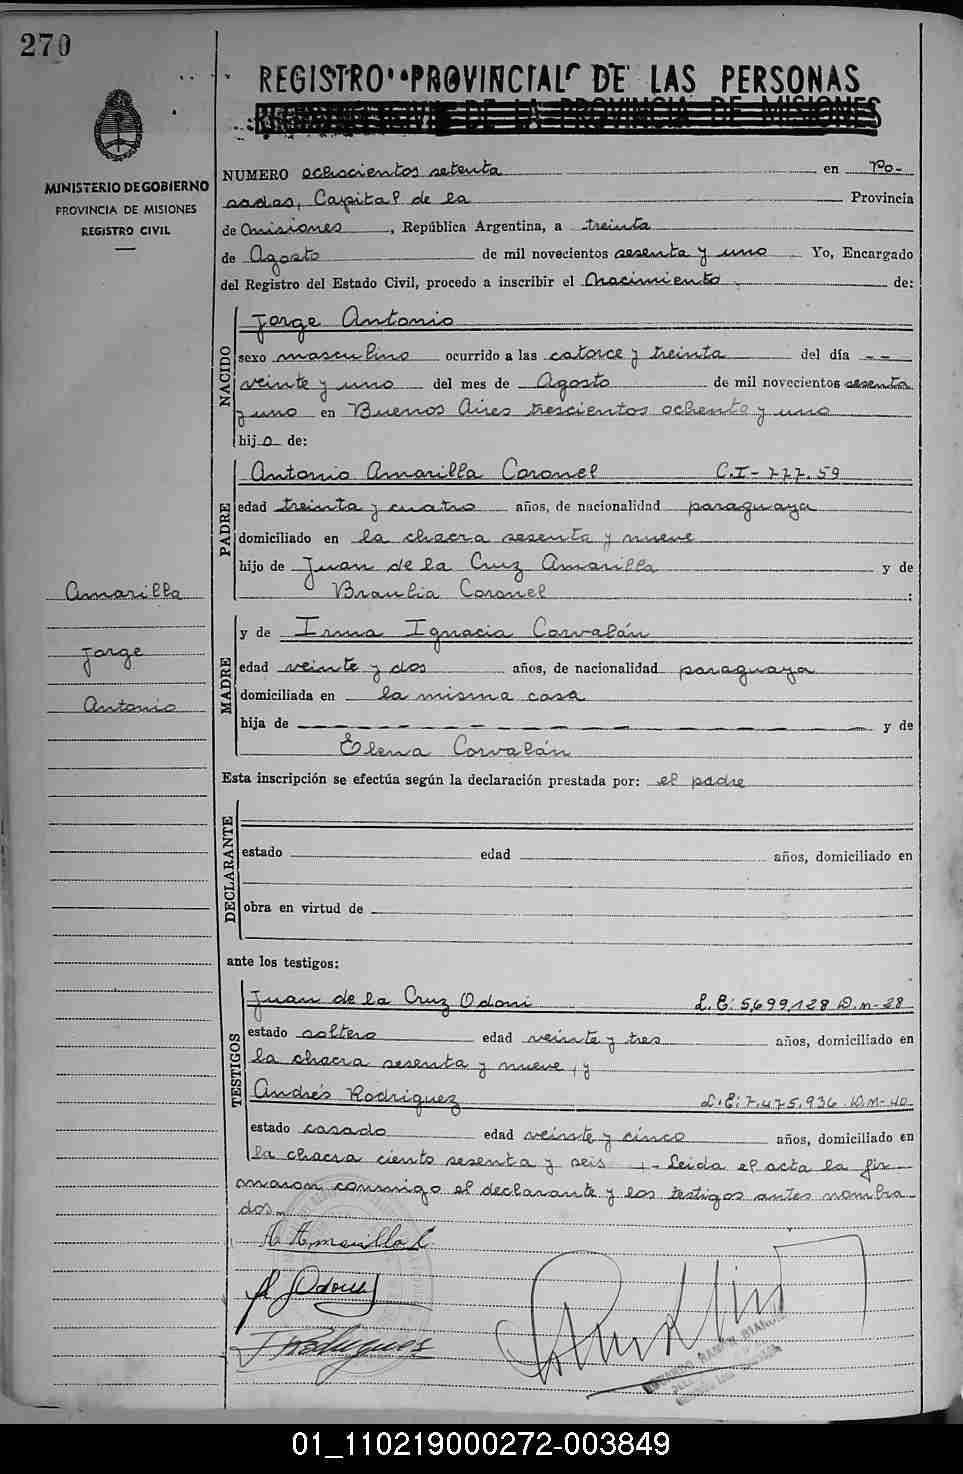 270
REGISTRO PROVINCIAL DE LAS PERSONAS
DE LA PROVINCIA DE MISIONES
MINISTERIO DE GOBIERNO
PROVINCIA DE MISIONES
REGISTRO CIVIL
NUMERO ochocientos setenta en Po-
sadas, Capital de la Provincia
de Misiones, República Argentina, a treinta
de Agosto de mil novecientos sesenta y uno Yo, Encargado
del Registro del Estado Civil, procedo a inscribir el Nacimiento de:
NACIDO
Jorge Antonio
sexo masculino ocurrido a las catorce y treinta del día --
veinte y uno del mes de Agosto de mil novecientos sesenta
y uno en Buenos Aires trescientos ochenta y uno
hijo de:
PADRE
Antonio Amarilla Coronel C.I-777.59
edad treinta y cuatro años, de nacionalidad paraguaya
domiciliado en la chacra sesenta y nueve
hijo de Juan de la Cruz Amarilla y de
Braulia Coronel :
Amarilla
Jorge
Antonio
MADRE
y de Irma Ignacia Corvalán
edad veinte y dos años, de nacionalidad paraguaya
domiciliada en la misma casa
hija de — — — — — — — — — — y de
Elena Corvalán
Esta inscripción se efectúa según la declaración prestada por: el padre
DECLARANTE
estado edad años, domiciliado en
obra en virtud de
ante los testigos:
TESTIGOS
Juan de la Cruz Odoni L.E: 5,699,128 D.M-28
estado soltero edad veinte y tres años, domiciliado en
la chacra sesenta y nueve, y
Andrés Rodriguez L.E: 7.475.936 D.M-40-
estado casado edad veinte y cinco años, domiciliado en
la chacra ciento sesenta y seis +- Leida el acta la fir-
maron conmigo el declarante y los testigos antes nombra-
dos.-
A Amarilla C.
Rodrigues
01_110219000272-003849